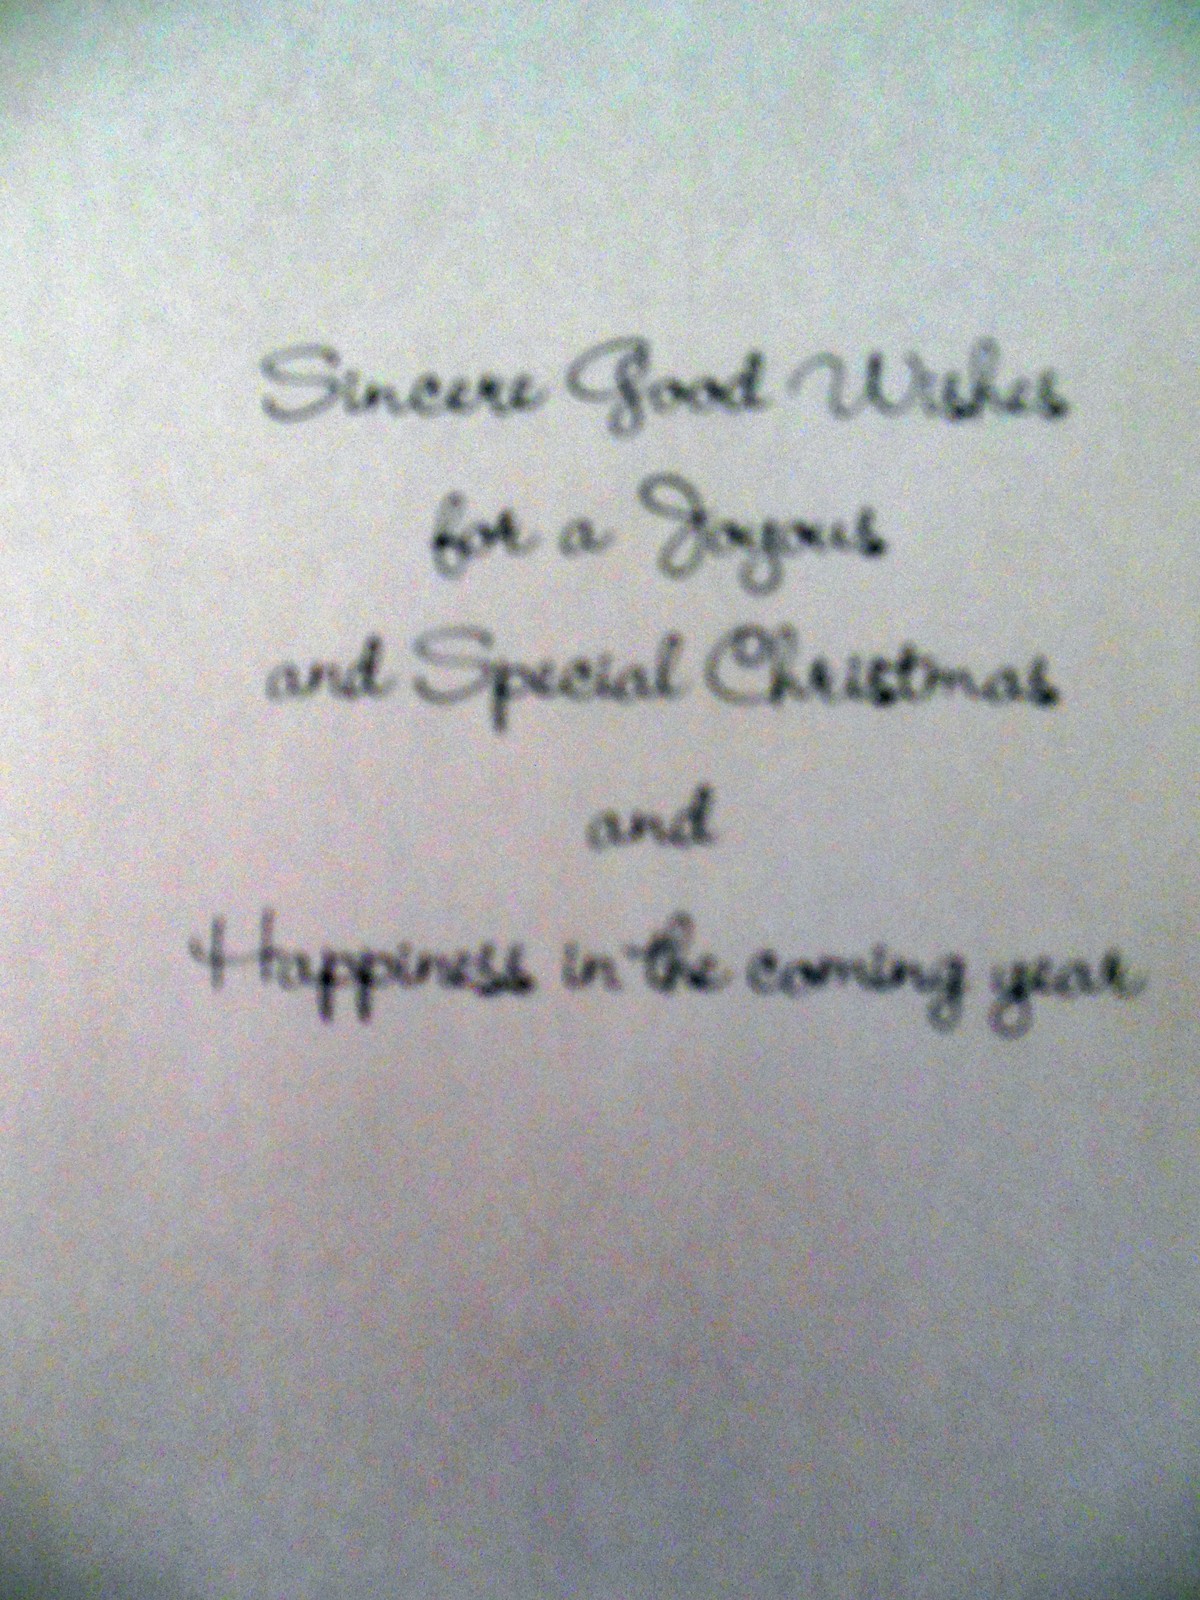 Sincere Good Wishes
for a Joyous
and Special Christmas
and
Happiness in the coming year